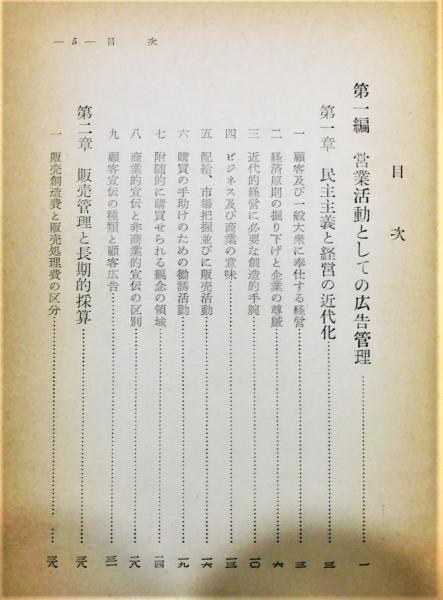 — 5 — 目 次
目次
第一編 営業活動としての広告管理…………一
第一章 民主主義と経営の近代化…………三
一 顧客及び一般大衆に奉仕する経営…………三
二 経済原則の掘り下げと企業の尊厳…………六
三 近代的経営に必要な創造的手腕…………一〇
四 ビジネス及び商業の意味…………一三
五 配給、市場把握並びに販売活動…………一六
六 購買の手助けのための勧誘活動…………一九
七 附随的に購買せられる観念の領域…………二四
八 商業的宣伝と非商業的宣伝の区別…………二八
九 顧客宣伝の種類と顧客広告…………三一
第二章 販売管理と長期的採算…………三八
一 販売創造費と販売処理費の区分…………三八